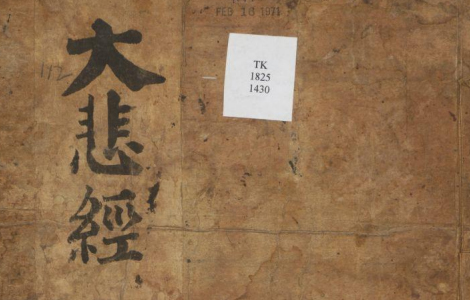 FEB 18 1971
大悲經
112
TK
1825
1430